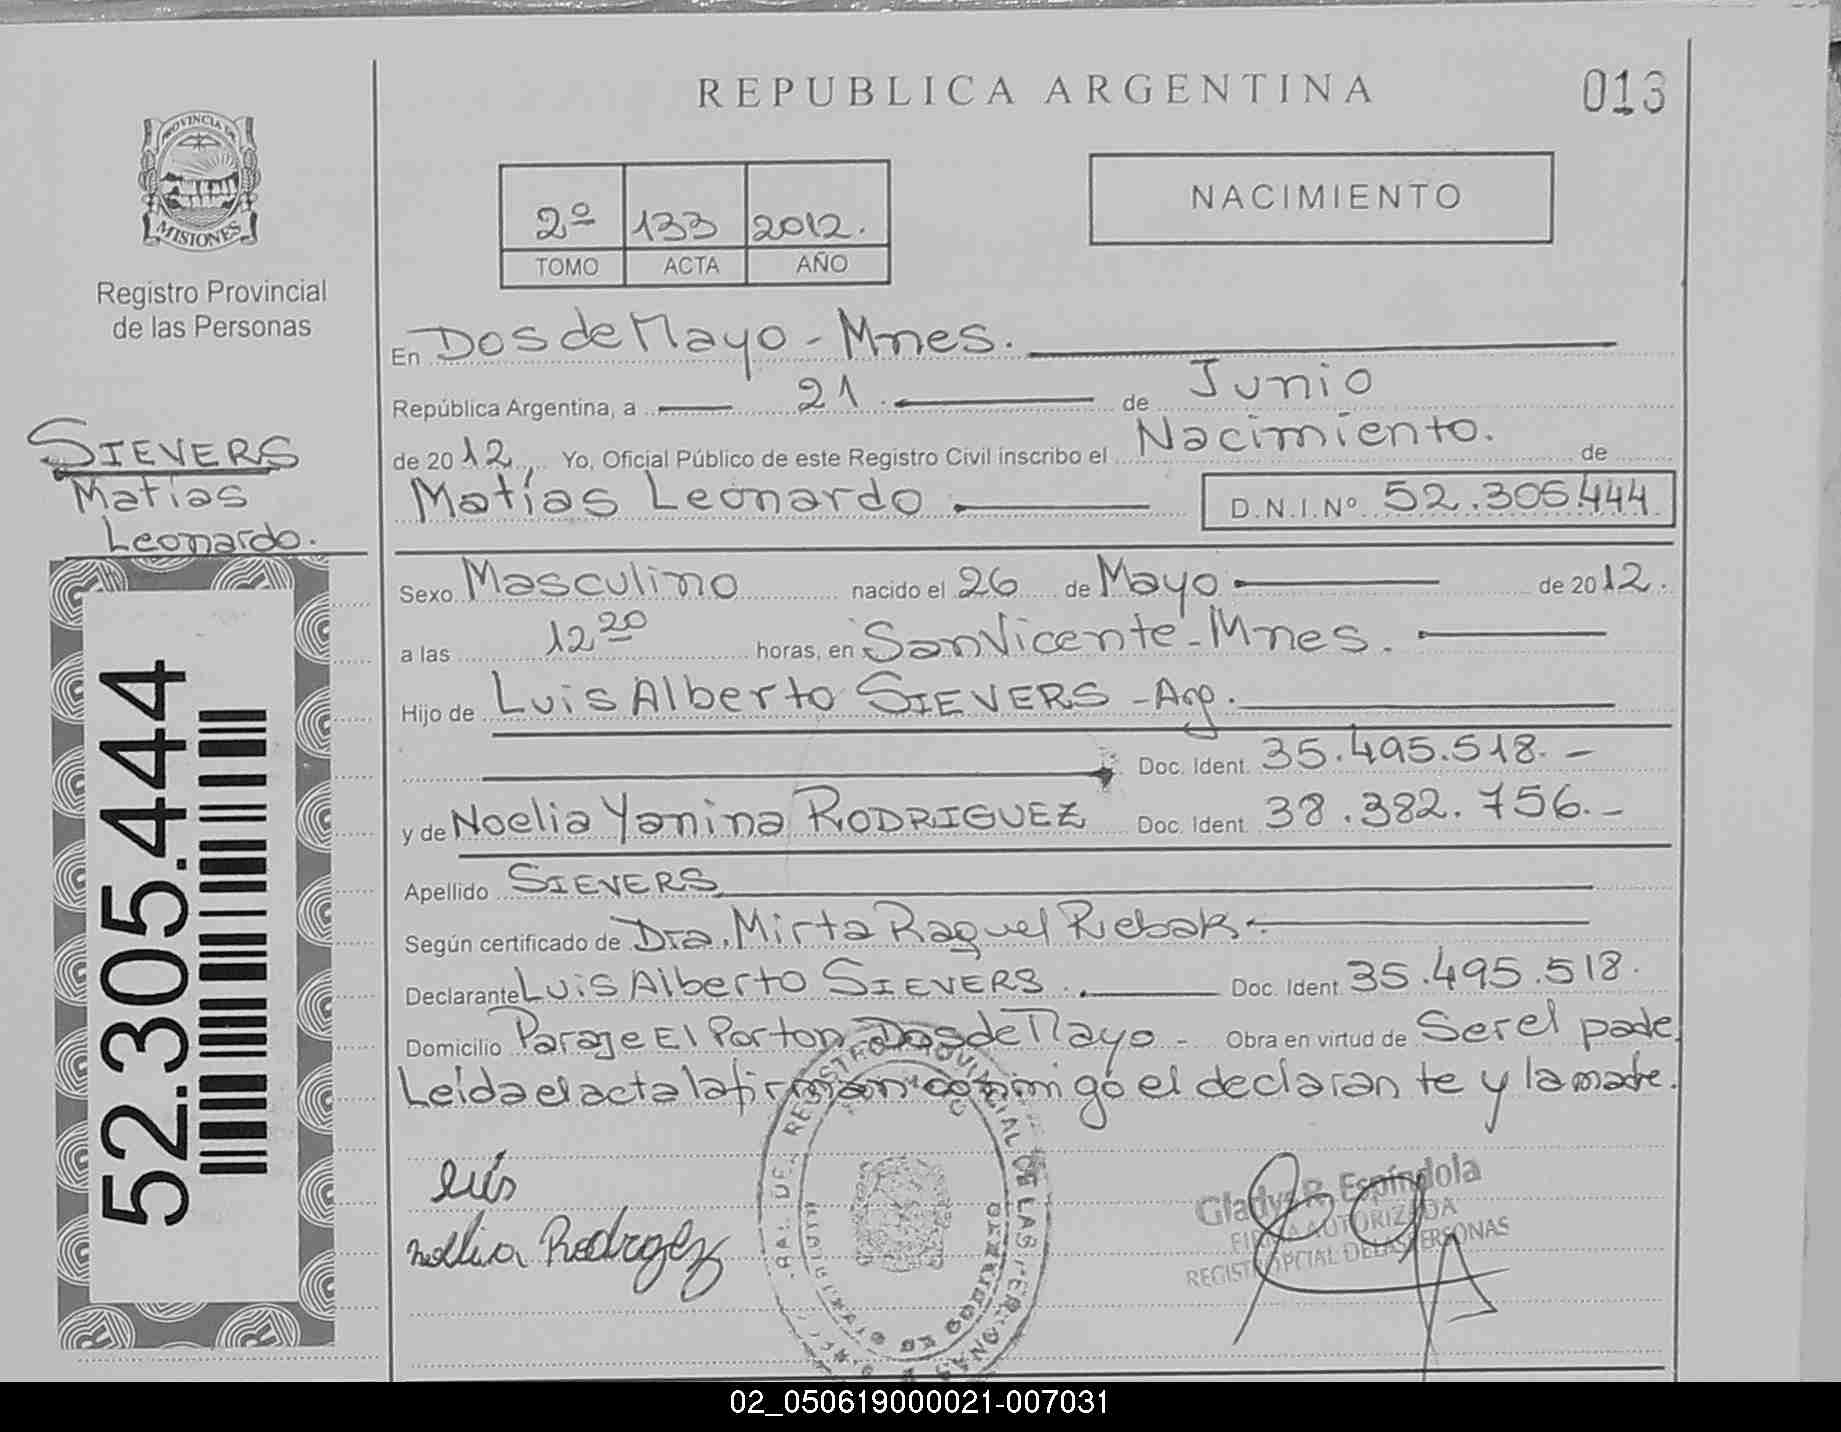 REPUBLICA ARGENTINA
013
PROVINCIA DE
MISIONES
Registro Provincial
de las Personas
2º 133 2012.
TOMO ACTA AÑO
NACIMIENTO
SIEVERS
Matías
Leonardo.
52.305.444
En Dos de Mayo - Mnes.
República Argentina, a 21 de Junio
de 2012, Yo, Oficial Público de este Registro Civil inscribo el Nacimiento. de
Matías Leonardo D.N.I.Nº 52.305.444
Sexo Masculino nacido el 26 de Mayo de 2012.
a las 12 20 horas, en San Vicente - Mnes.
Hijo de Luis Alberto SIEVERS - Arg.
Doc. Ident. 35.495.518. -
y de Noelia Yanina RODRIGUEZ Doc. Ident. 38.382.756. -
Apellido SIEVERS
Según certificado de Dra. Mirta Raquel Riebak.
Declarante Luis Alberto SIEVERS. Doc. Ident. 35.495.518.
Domicilio Paraje El Porton, Dos de Mayo - Obra en virtud de Ser el padre
Leída el acta la firman conmigo el declarante y la madre.
Gladys R. Espíndola
FIRMA AUTORIZADA
REGISTRO PCIAL DE LAS PERSONAS
02_050619000021-007031